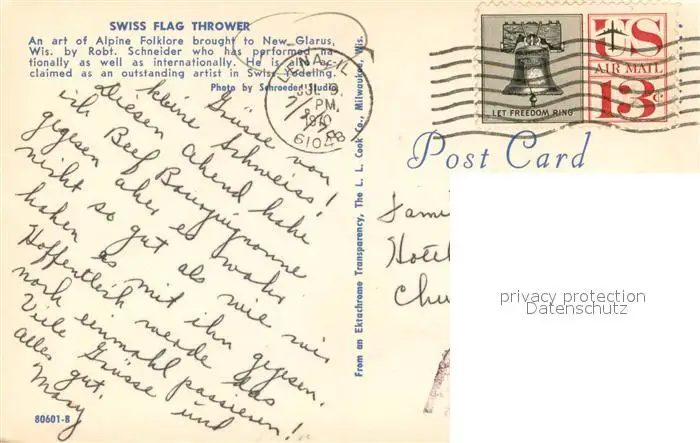 SWISS FLAG THROWER
An art of Alpine Folklore brought to New Glarus,
Wis. by Robt. Schneider who has performed na-
tionally as well as internationally. He is also ac-
claimed as an outstanding artist in Swiss Yodeling.
Photo by Schroeder Studio
LENA, ILL
JUL 9
PM
1970
61048
LET FREEDOM RING
US
AIR MAIL
13c
Post Card
kleine Grüsse von
kleine Schweiss!
Diesen Abend habe
ich Beef Bourguignonne
gegesen aber es wahr
nicht so gut als wie wir
haben es mit ihn gegesen.
Hoffentlich werde das
noch einmahl passieren!
Viele Grüsse und
alles gut.
Mary
80601-B
From an Ektachrome Transparency, The L. L. Cook Co., Milwaukee, Wis.
Fami
Hotel
Chu
privacy protection
Datenschutz